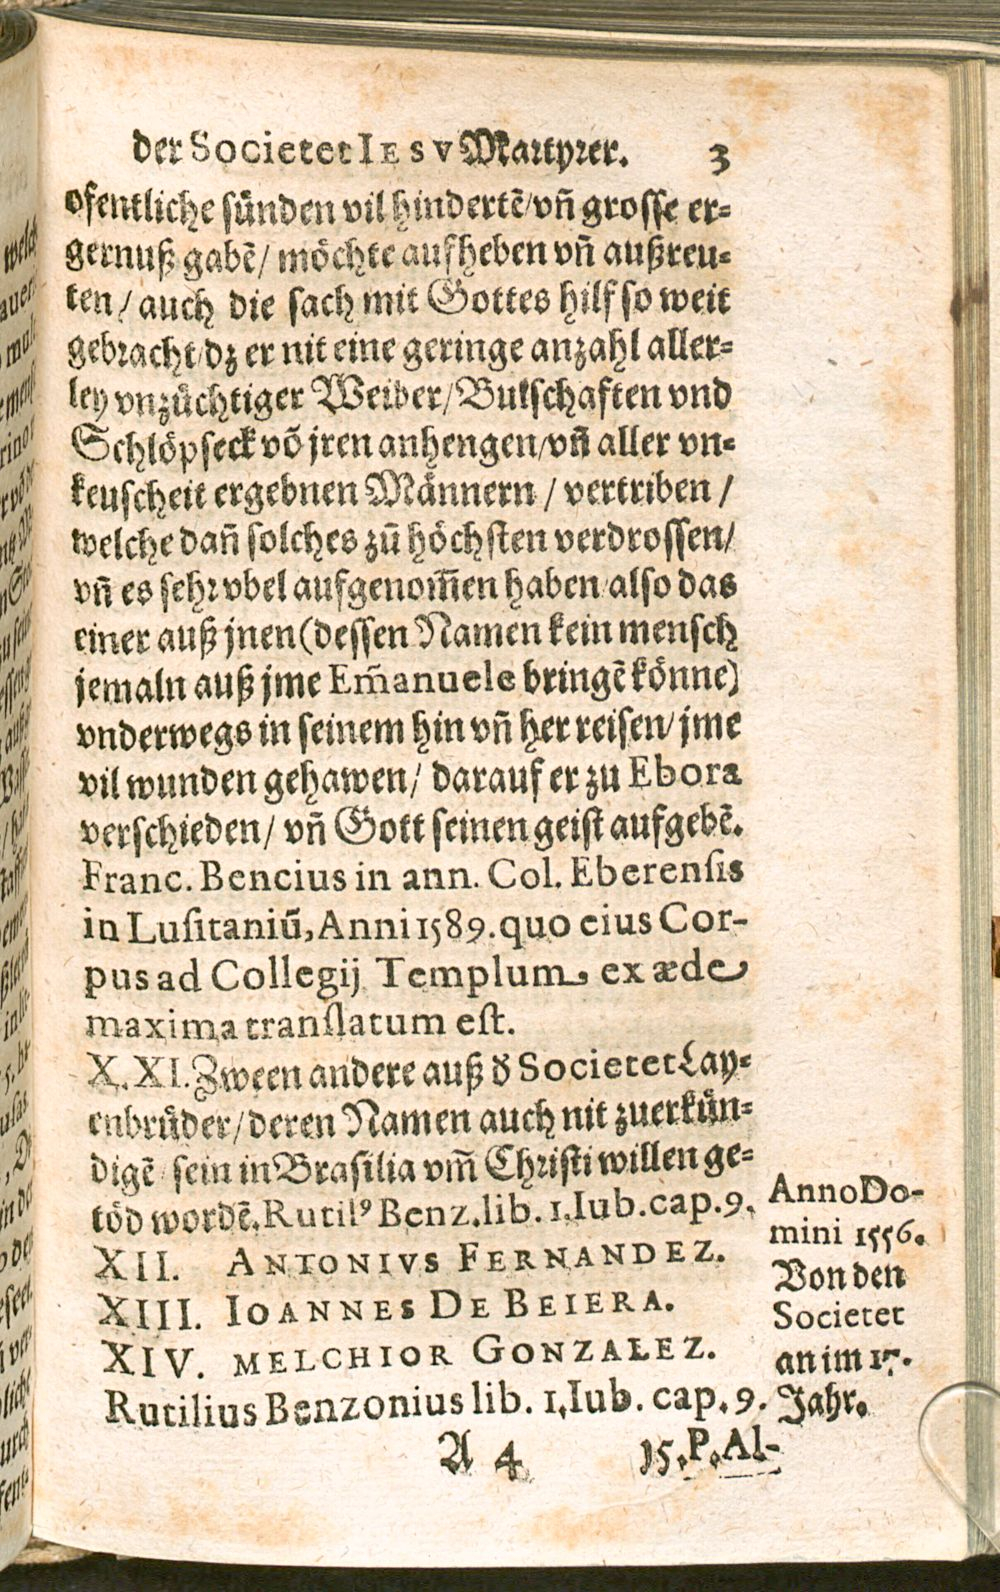 der Societet IESV Martyrer. 3
ofentliche sünden vil hindertē/vñ grosse er⸗
gernuß gabē/ möchte aufheben vñ außreu⸗
ten/ auch die sach mit Gottes hilf so weit
gebracht/dz er nit eine geringe anzahl aller⸗
ley vnzüchtiger Weiber/Bulschaften vnd
Schlöpseck vō jren anhengen/vñ aller vn⸗
keuscheit ergebnen Männern / vertriben /
welche dañ solches zū höchsten verdrossen/
vñ es sehr vbel aufgenom̄en haben/also das
einer auß jnen (dessen Namen kein mensch
jemaln auß jme Em̄anuele bringē könne)
vnderwegs in seinem hin vñ her reisen/ jme
vil wunden gehawen/ darauf er zu Ebora
verschieden/ vñ Gott seinen geist aufgebē.
Franc. Bencius in ann. Col. Eberensis
in Lusitaniū, Anni 1589. quo eius Cor-
pus ad Collegij Templum ex æde
maxima translatum est.
X. XI. Zween andere auß ð Societet Lay⸗
enbrüder/deren Namen auch nit zuerkün⸗
digē/ sein in Brasilia vm̄ Christi willen ge⸗
töd wordē. Rutilꝰ Benz. lib. 1. Iub. cap. 9.
XII. ANTONIVS FERNANDEZ.
XIII. IOANNES DE BEIERA.
XIV. MELCHIOR GONZALEZ.
Rutilius Benzonius lib. 1. Iub. cap. 9.
Anno Do-
mini 1556.
Von den
Societet
an im 17.
Jahr.
A 4 15. P. Al-